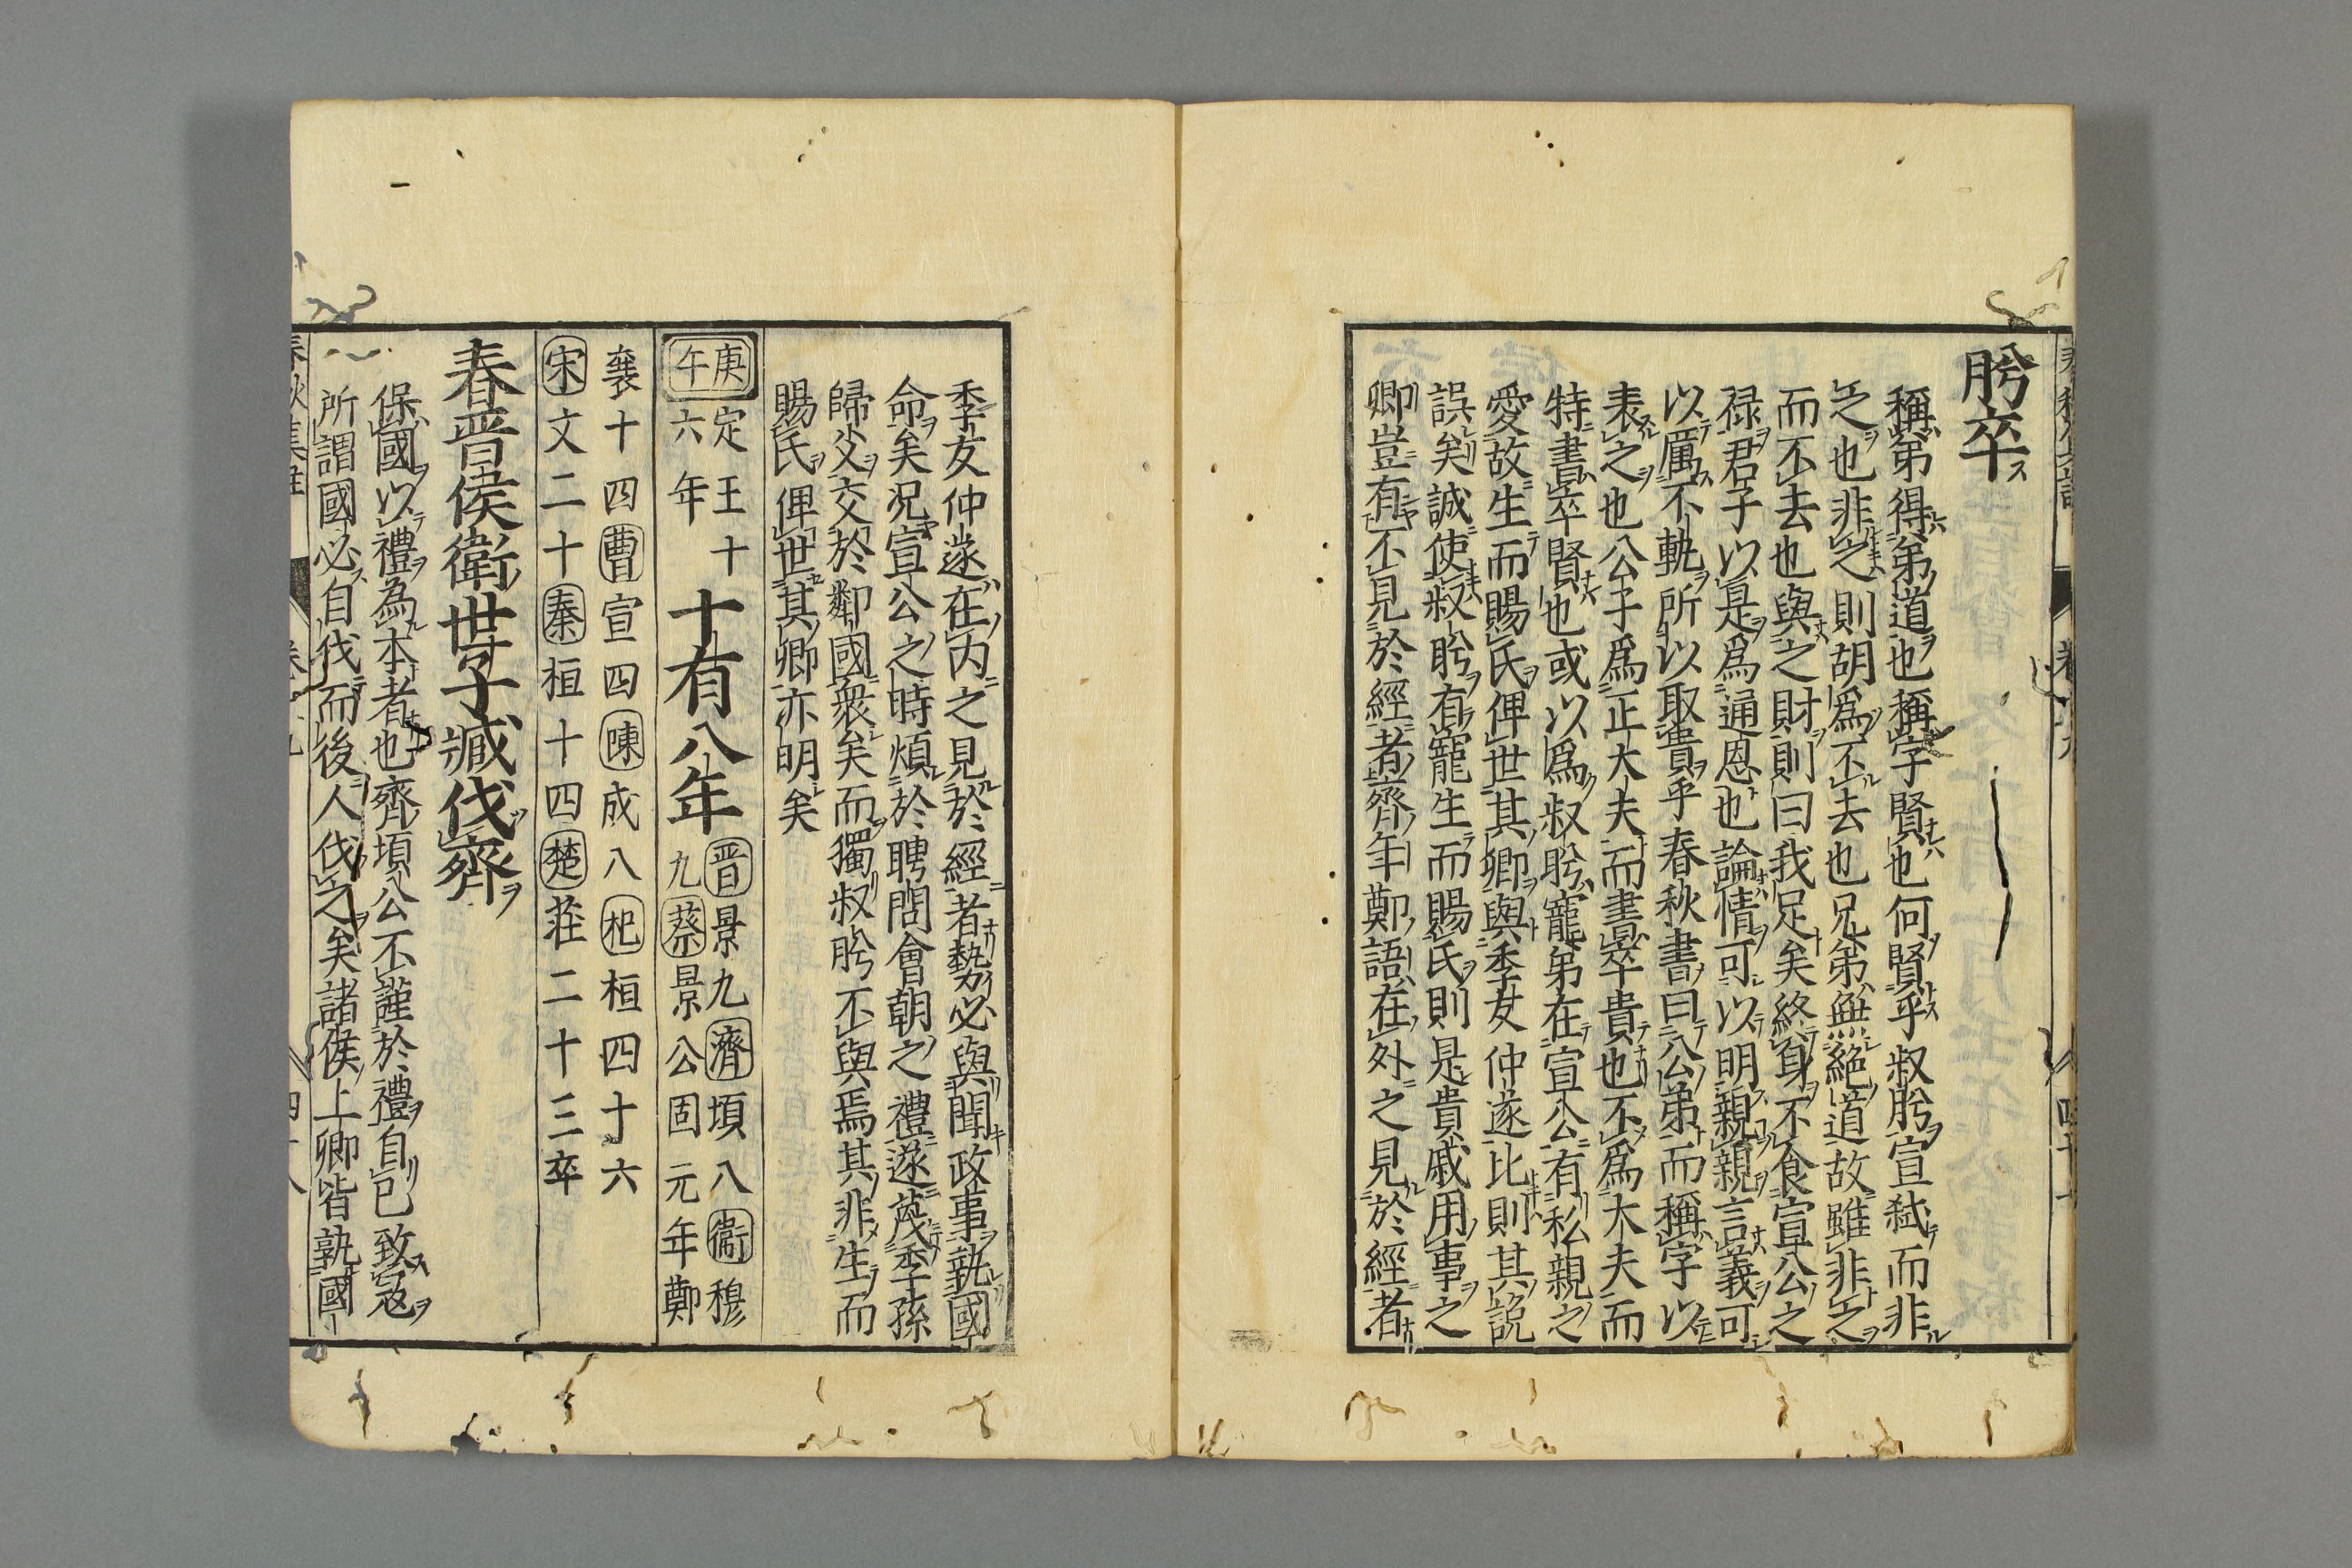 肹卒ス
稱弟得弟道也稱字賢也何賢乎叔肹宣弑而非
之也非之則胡爲不去也兄弟無絕道故雖非之
而不去也與之財則曰我足矣終身不食宣公之
禄君子以是爲通恩也論情可以明親親言義可
以厲不軌所以取貴乎春秋書曰公弟而稱字以
表之也公子爲正大夫而書卒貴也不爲大夫而
特書卒賢也或以爲叔肹寵弟在宣公有私親之
愛故生而賜氏俾世其卿與季友仲遂比則其說
誤矣誠使叔肹有寵生而賜氏則是貴戚用事之
卿豈有不見於經者齊年鄭語在外之見於經者
季友仲遂在内之見於經者勢必與聞政事執國
命矣況宣公之時煩於聘問會朝之禮遂蔑季孫
歸父交於鄰國衆矣而獨叔肹不與焉其非生而
賜氏俾世其卿亦明矣
庚午 定王十六年 十有八年 晋景九齊頃八衞穆九蔡景公固元年鄭
襄十四曹宣四陳成八杞桓四十六
宋文二十秦桓十四楚莊二十三卒
春晋侯衛世子臧伐齊ヲ
保國以禮為本者也齊頃公不謹於禮自已致寇
所謂國必自伐而後人伐之矣諸侯上卿皆執國